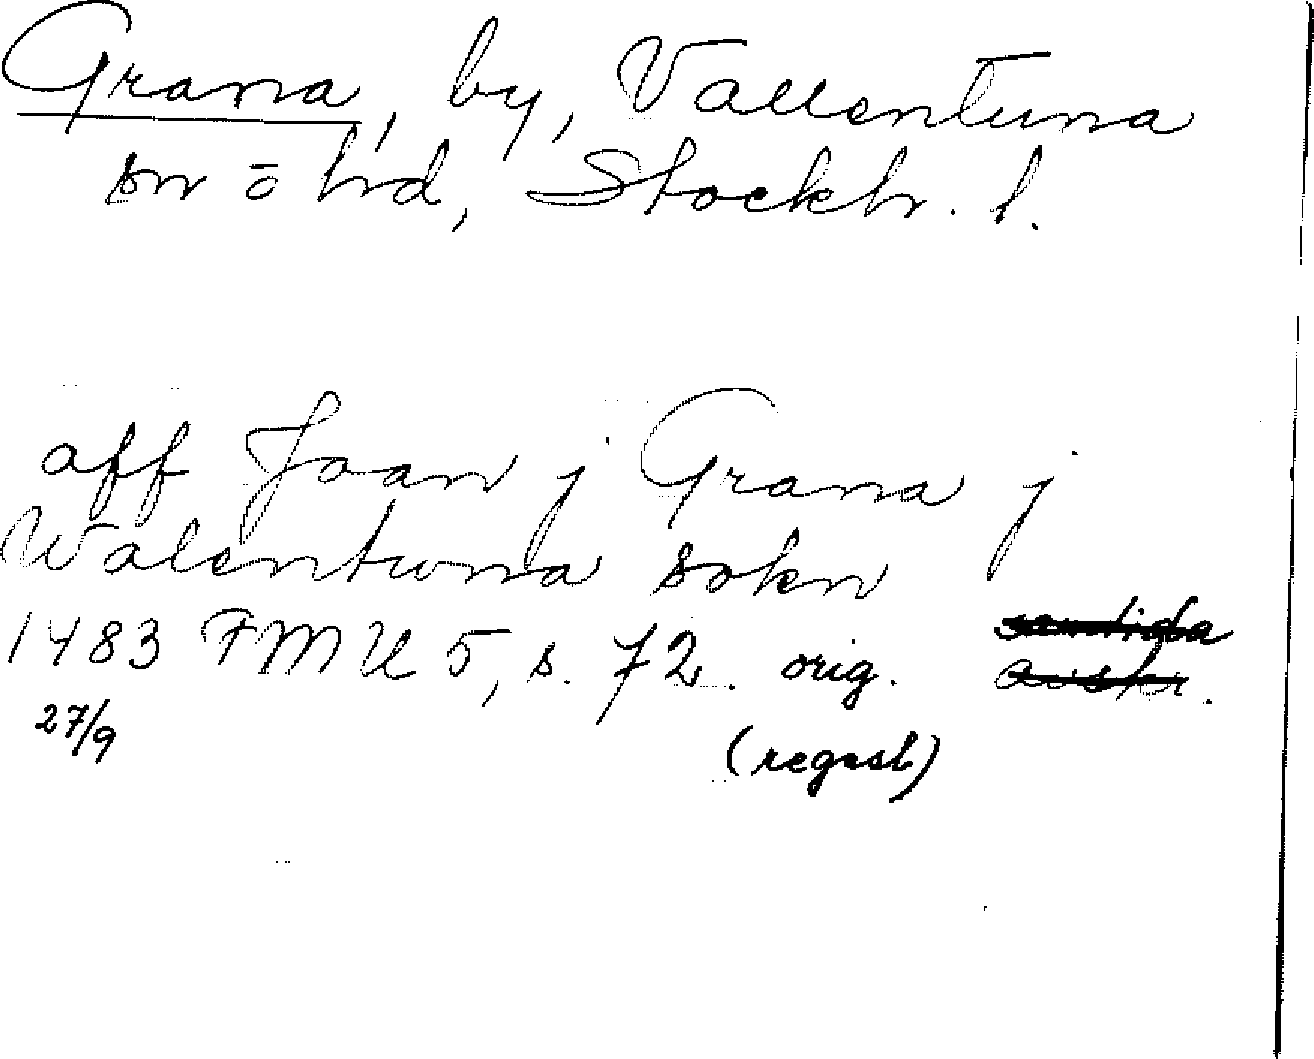 Grana, by, Vallentuna
sn o hd, Stockh. l.
aff Joan j Grana j
Walentwna sokn
1483 FMU 5, s. 72. orig. samtida
27/9 (regest) avskr.